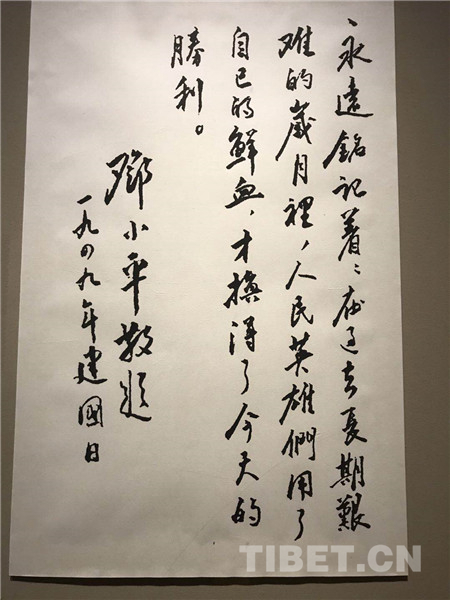 永遠銘記着：在过去長期艱
难的歲月裡，人民英雄們用了
自己的鲜血，才换得了今天的
勝利。
鄧小平敬題
一九四九年建國日
TIBET.CN